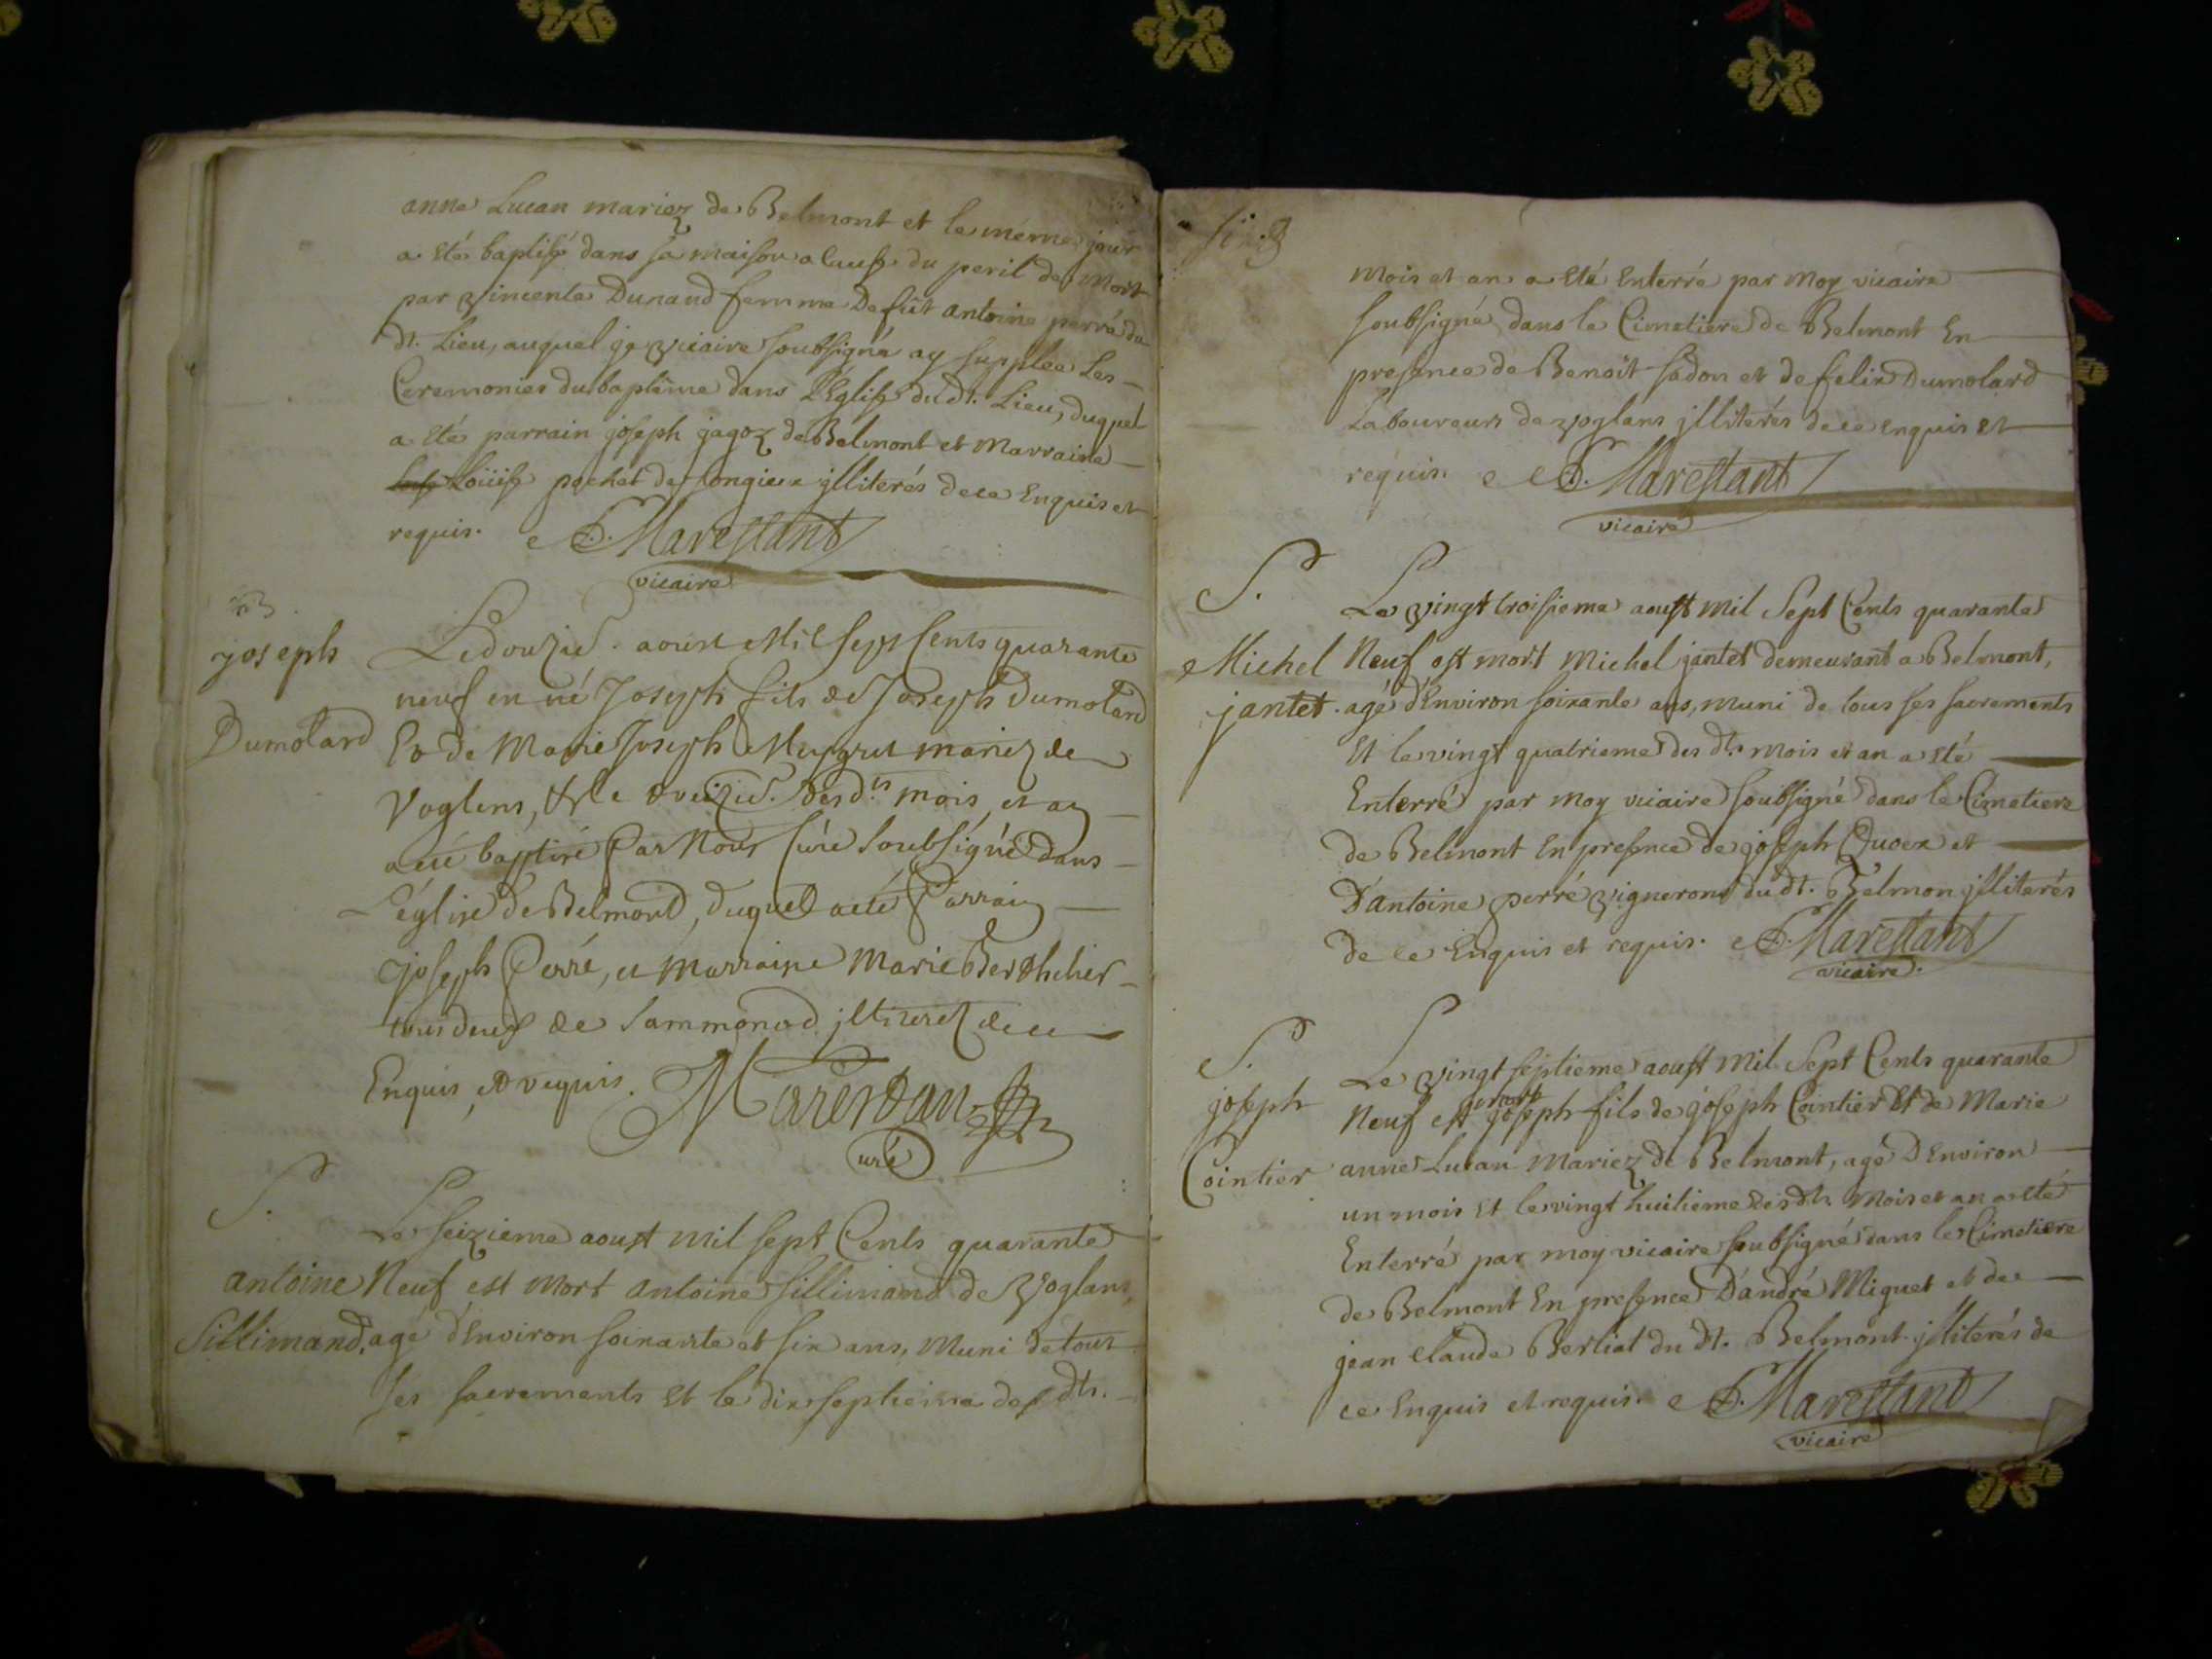 anne Lucan mariez de Belmont et le meme jour
a eté baptisé dans sa maison a cause du peril de mort
par vincente Dunand femme de fût antoine perré du
dt. Lieu, auquel je vicaire soubsigné ay supplée Les
Ceremonies du baptême dans L'Eglise dudt. Lieu, duquel
a eté parrain joseph jagoz de Belmont et Marraine
Loüise pochet de songieu jlliterés de ce Enquis et
requis. Marestant
vicaire
B
joseph
Dumolard
Le douzie. aoust Mil sept Cents quarante
neuf en né Joseph fils de Joseph Dumolard
Et de Marie Joseph mariez de
Voglens, & le douzie. desdts. mois et an
a eté baptisé Par Nous Curé soubsigné dans
L'église de Belmont, duquel a eté Parrain
joseph Perré, et Marraine Marie Berthelier
tous deux de Sammonod jlliterez de ce
Enquis, et requis. Marestan
Curé
S.
antoine
Sillimand.
Le seizieme aoust mil sept Cents quarante
Neuf est Mort antoine Sillimand de voglans,
agé d'Environ soixante et six ans, Muni de tous
ses sacrements Et le dix septieme des dts.
mois et an a eté Enterré par Moy vicaire
soubsigné dans le Cimetiere de Belmont En
presence de Benoit sadon et de felix Dumolard
Laboureurs de voglans jlliterés de ce enquis et
requis. Marestant
vicaire
S.
Michel
jantet.
Le vingt troisieme aoust mil Sept Cents quarante
Neuf est mort Michel jantet demeurant a Belmont,
agé d'Environ soixante ans, muni de tous ses sacrements
Et le vingt quatrieme des dts. mois et an a eté
Enterré par moy vicaire soubsigné dans le Cimetiere
de Belmont En presence de joseph Quoex et
D'antoine perré vignerons du dt. Belmon jlliterés
de ce Enquis et requis. Marestant
vicaire.
S.
joseph
Cointier
Le vingt septieme aoust mil Sept Cents quarante
Neuf est mort joseph fils de joseph Cointier Et de Marie
anne Lucan Mariez de Belmont, agé D'Environ
un mois Et le vingt huitieme des dts. Mois et an a eté
Enterré par moy vicaire soubsigné dans le Cimetiere
de Belmont En presence D'andré Miguet et de
jean Claude Berliat du dt. Belmont jlliterés de
ce Enquis et requis. Marestant
vicaire